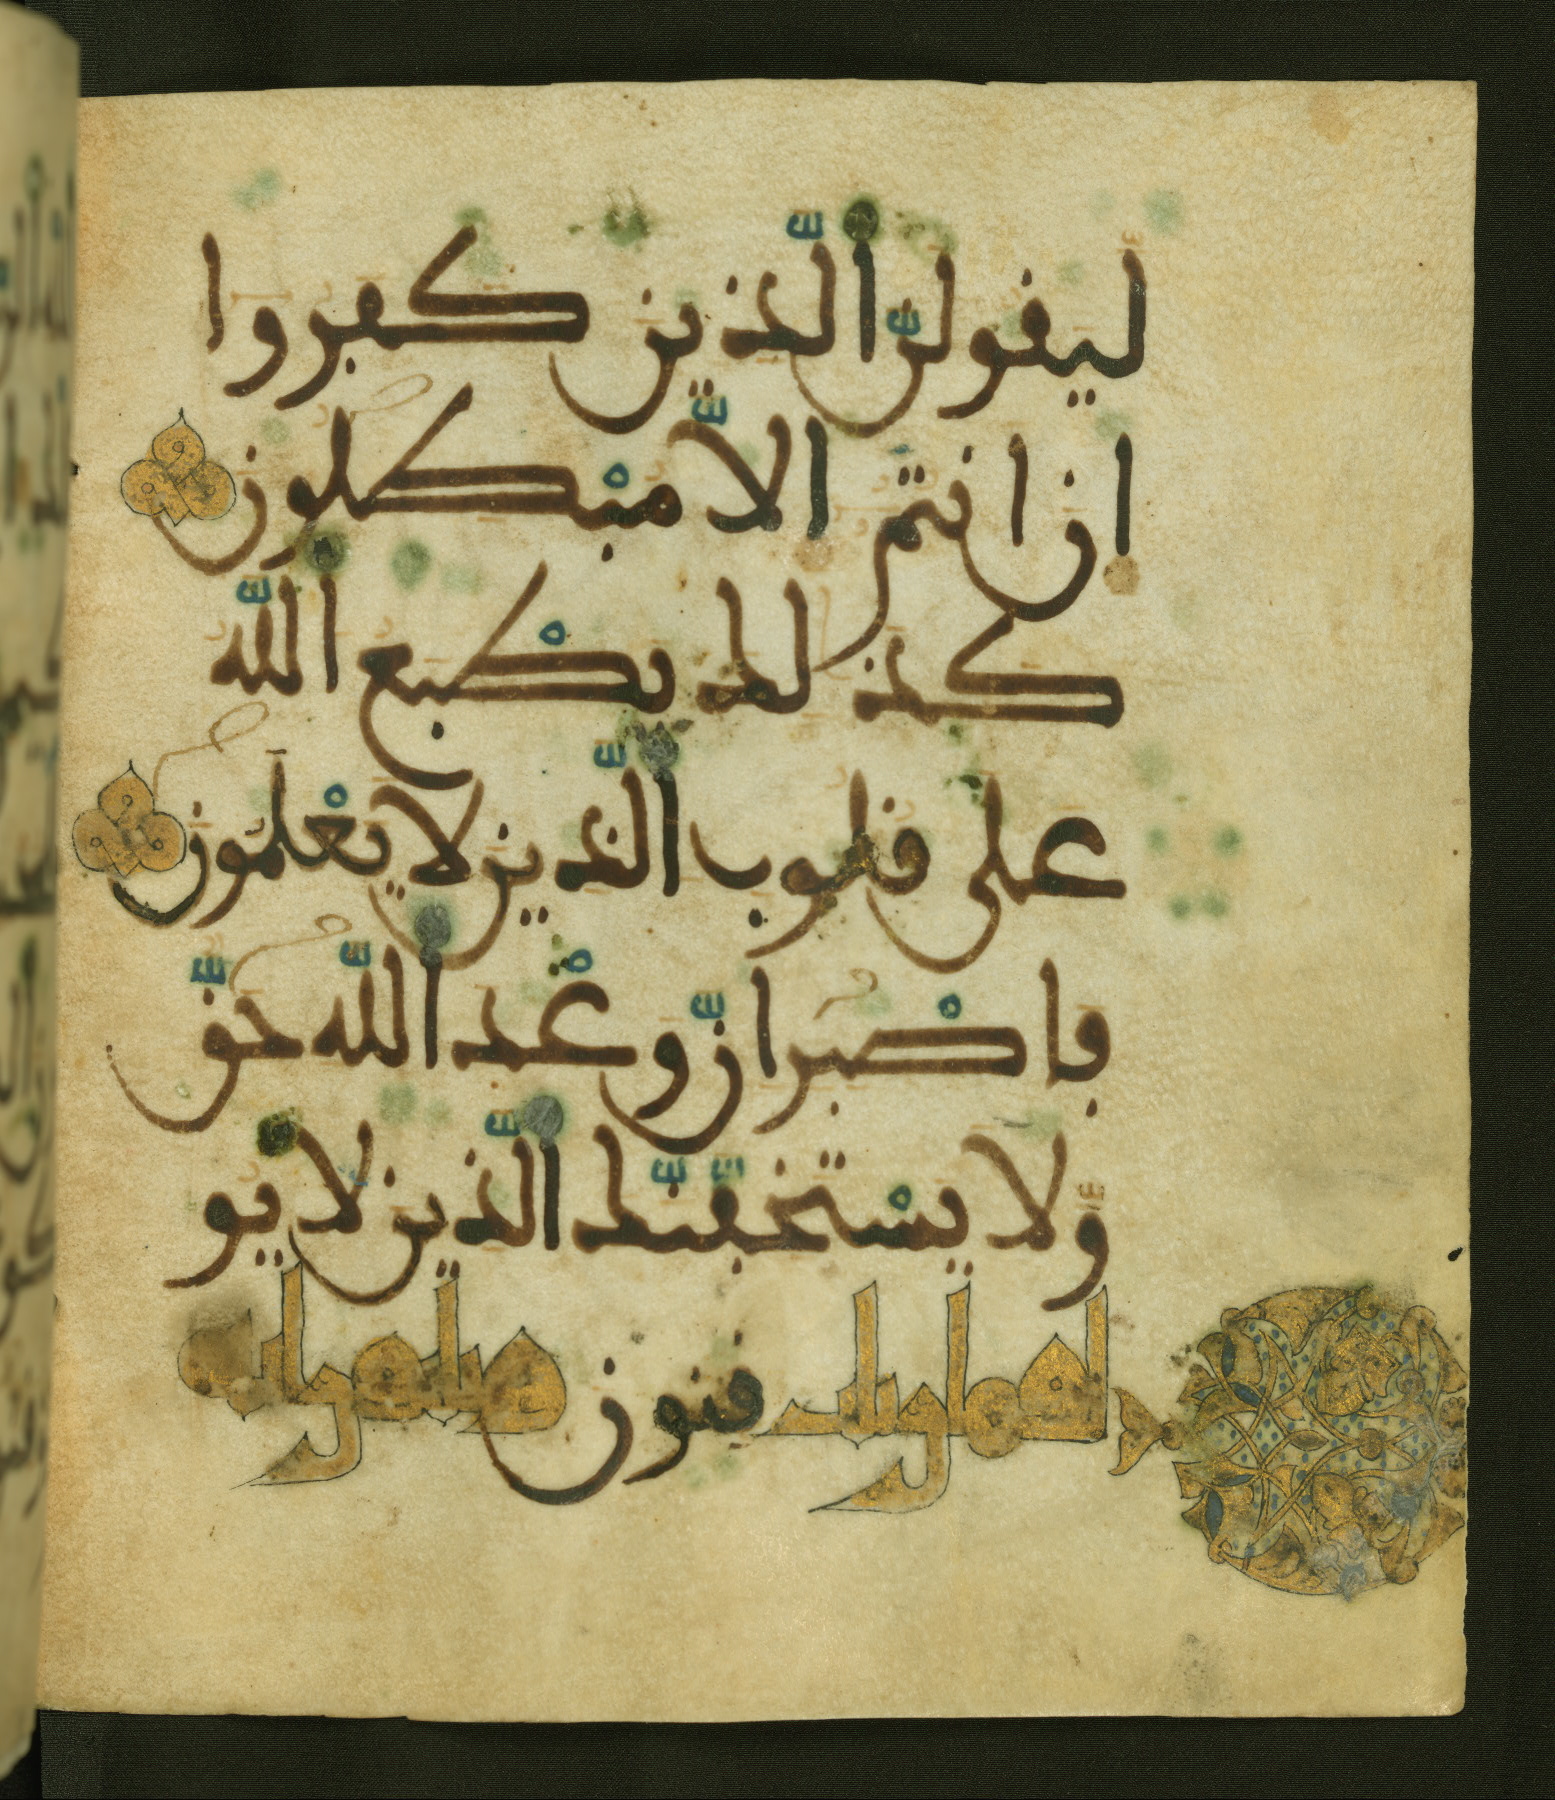 ليقولنّ الّذين كفروا
ان انتم الاّ مبْطلون
كذلك يطْبع اللّه
على قلوب الّذين لا يعْلمون
فاصْبر انّ وعْد اللّه حقّ
ولا يسْتخفّنّك الّذين لا يو
قنون